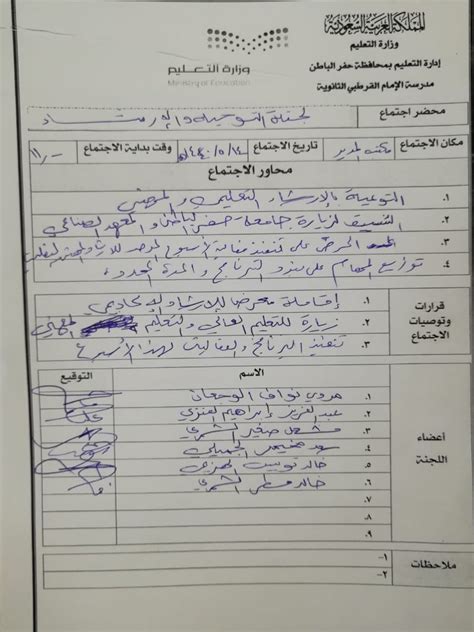 المملكة العربية السعودية
وزارة التعليم
إدارة التعليم بمحافظة حفر الباطن
مدرسة الإمام القرطبي الثانوية
وزارة التعليم
Ministry of Education
محضر اجتماع لجنة التوجيه والإرشاد
مكان الاجتماع مكتب المدير تاريخ الاجتماع وقت بداية الاجتماع ١١,-
محاور الاجتماع
١. التوعية بالإرشاد التعليمي والمهني
٢. التنسيق لزيارة جامعة حفر الباطن والمعهد الصناعي
٣. الحرص على تنفيذ الأسبوع
٤. توزيع المهام على منذو البرنامج والمدة المحددة
قرارات وتوصيات الاجتماع
١. إقامة معرض للإرشاد الأكاديمي
٢. زيارة للتعليم العالي والتعليم المهني
٣. تنفيذ البرنامج والفعاليات لهذا الأسبوع
أعضاء اللجنة
الاسم التوقيع
١. نواف
٢. عبدالعزيز إبراهيم العنزي
٣. مشعل صغير الشمري
٤. سعد
٥. خالد
٦. خالد مطر الشمري
٧.
٨.
٩.
ملاحظات
١-
٢-